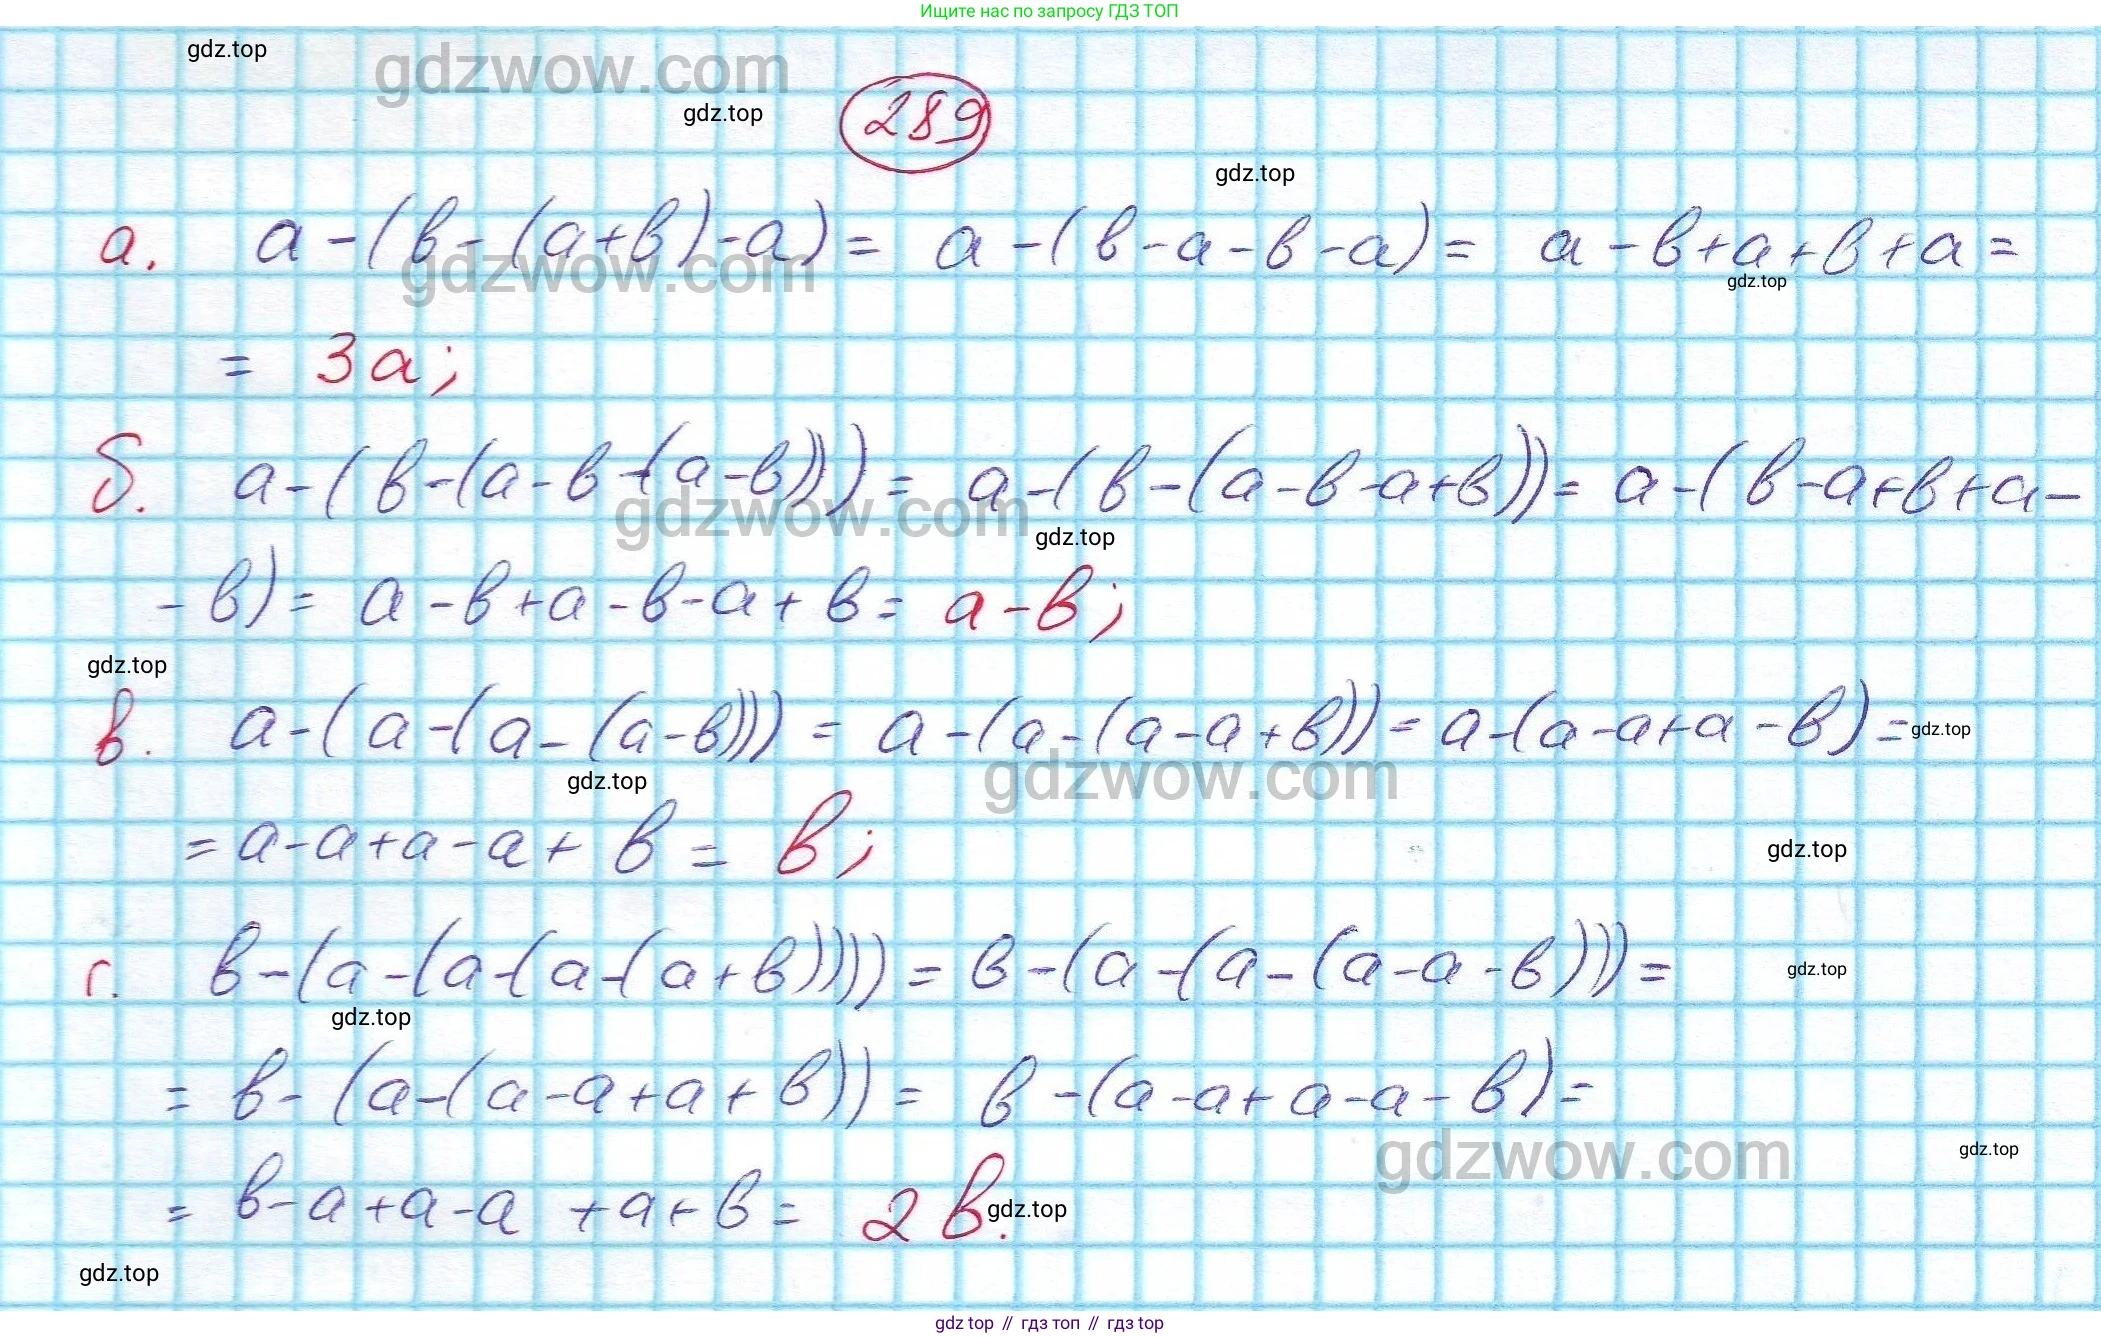 Ищите нас по запросу ГДЗ ТОП
gdz.top
gdzwow.com
gdz.top
289
gdz.top
а. a-(в-(a+в)-a)= a-(в-a-в-a)= a-в+a+в+a=
gdzwow.com
gdz.top
= 3a;
б. a-(в-(a-в-(a-в)))= a-(в-(a-в-a+в))= a-(в-a+в+a-
gdzwow.com
gdz.top
-в)= a-в+a-в-a+в= a-в;
gdz.top
в. a-(a-(a-(a-в)))= a-(a-(a-a+в))= a-(a-a+a-в)=
gdz.top
gdz.top
gdzwow.com
=a-a+a-a+в= в;
gdz.top
г. в-(a-(a-(a-(a+в))))= в-(a-(a-(a-a-в)))=
gdz.top
gdz.top
= в-(a-(a-a+a+в))= в-(a-a+a-a-в)=
gdzwow.com
gdz.top
= в-a+a-a+a+в= 2в.
gdz.top
gdz.top
gdz top // гдз топ // gdz top